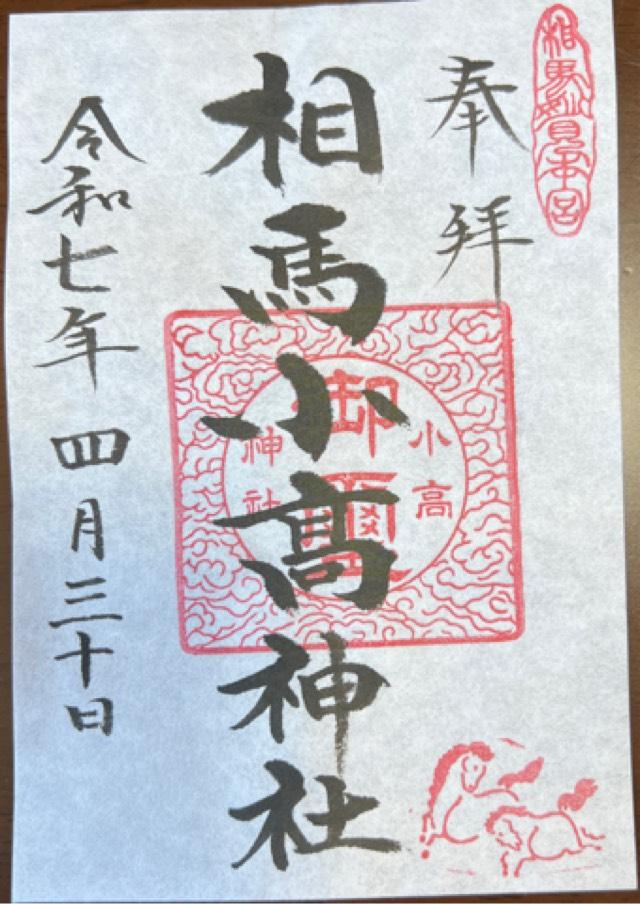 相馬妙見本宮
奉拝
相馬小髙神社
小高
神社
御璽
令和七年四月三十日